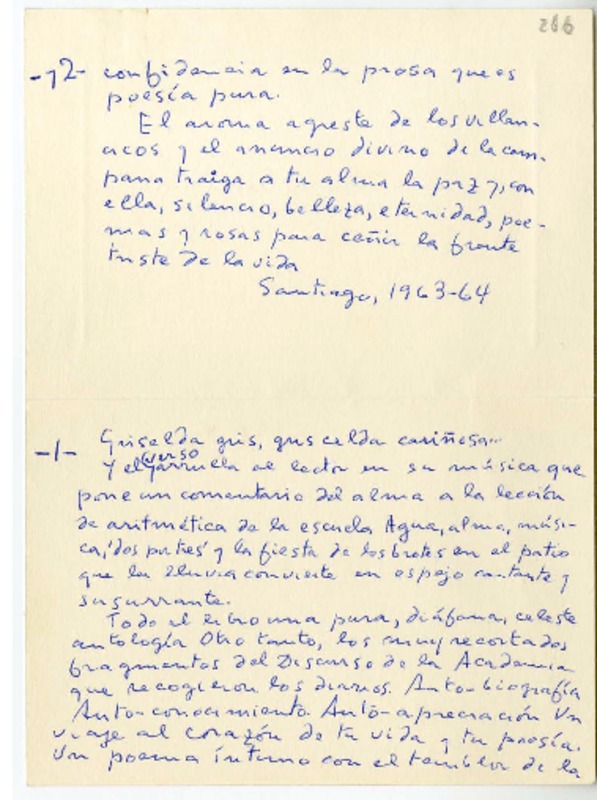 266
-2- confidencia en la prosa que es
poesía pura.
El aroma agreste de los villan-
cicos y el anuncio divino de la cam-
pana traiga a tu alma la paz y, con
ella, silencio, belleza, eternidad, poe-
mas y rosas para ceñir la frente
triste de la vida
Santiago, 1963-64
-1- Griselda gris, gris celda cariñosa...
verso
Y el garrulla al lector en su música que
pone un comentario del alma a la lección
de aritmética de la escuela Agua, alma, músi-
ca, 'dos patres' y la fiesta de los brotes en el patio
que la lluvia convierte en espejo cantante y
susurrante.
Todo el libro una pura, diáfana, celeste
antología Otro tanto, los muy recortados
fragmentos del Discurso de la Academia
que recogieron los diarios. Auto-biografía
Auto-conocimiento. Auto-apreciación Un
viaje al corazón de tu vida y tu poesía.
Un poema íntimo con el temblor de la